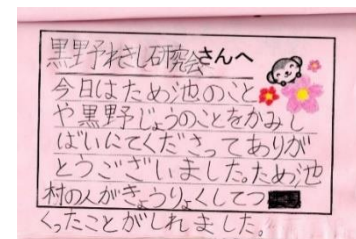 黒野れきし研究会さんへ
今日はため池のこと
や黒野じょうのことをかみし
ばいにてくださってありが
とうございました。ため池
村の人がきょうりょくしてつ
くったことがしれました。